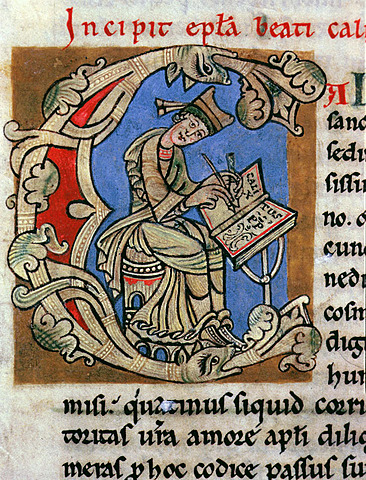 Incipit epl̄a beati cali
A
sanc
sedi
sissi
no.
cunc
nedi
cosm
dig
hun
misi. quatinus siquid corri
toritas ur̄a amore apl̄i dilig
meras p hoc codice passus su